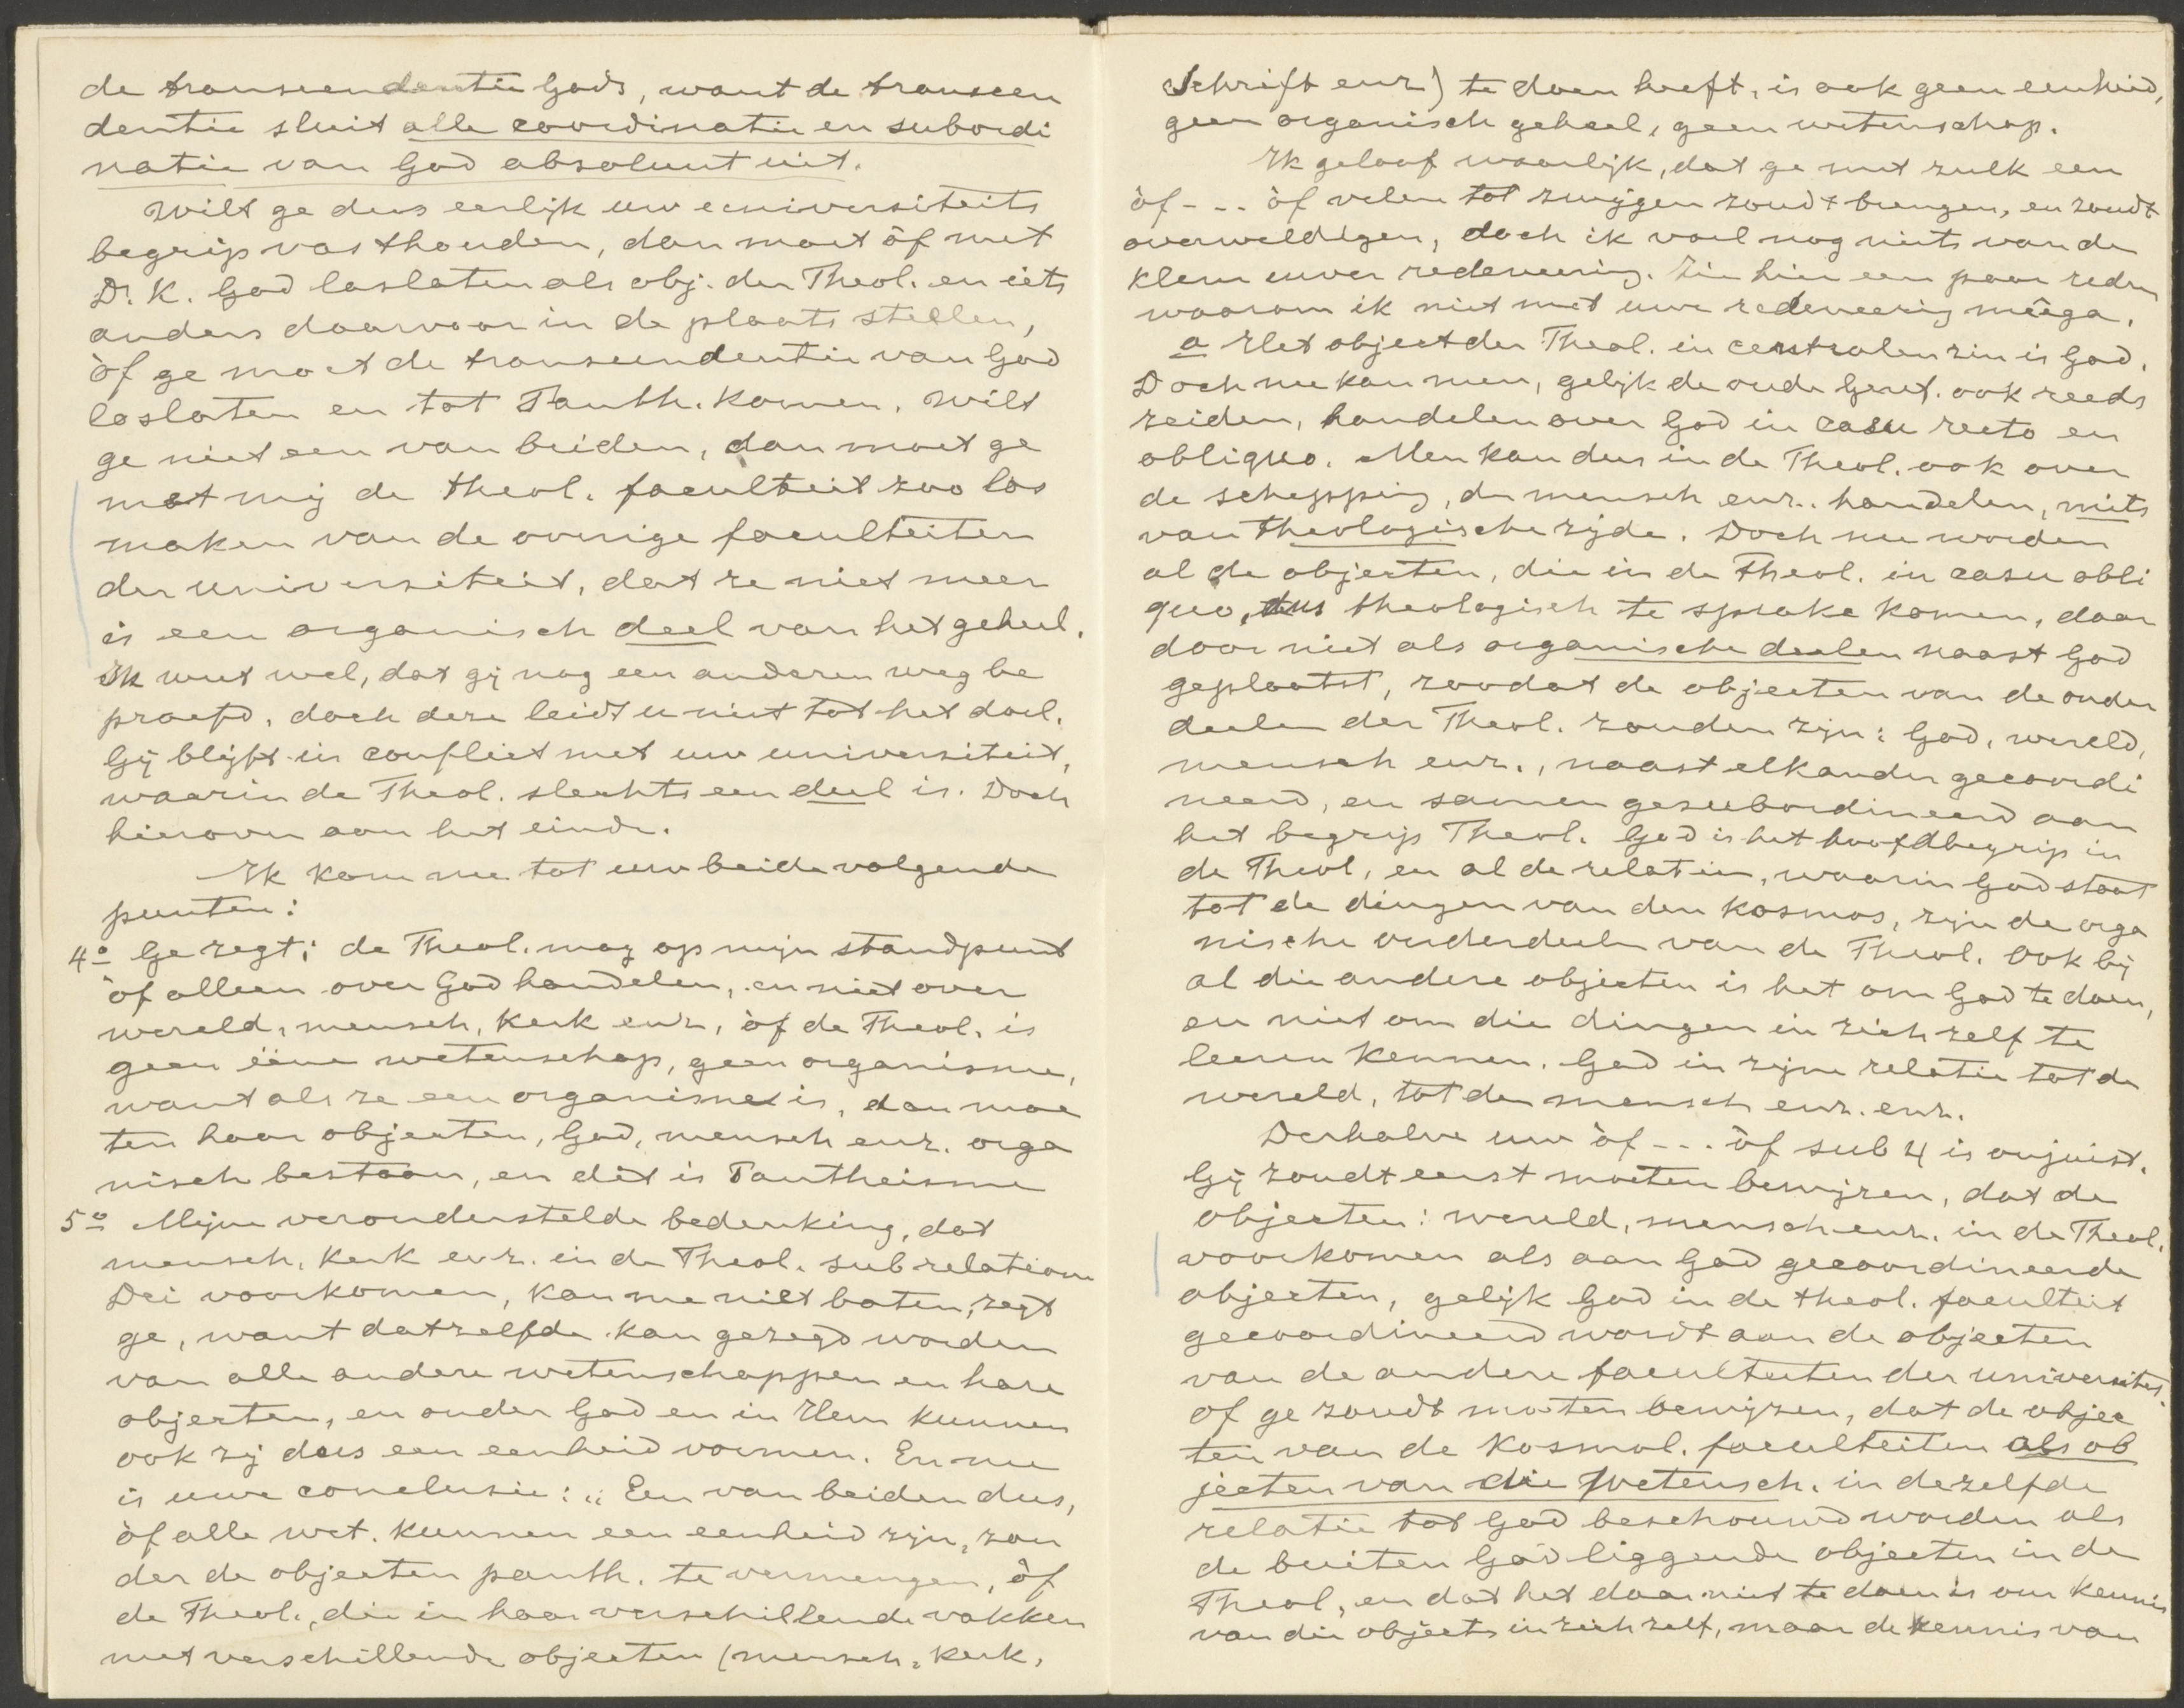 de transcendentie Gods, want de transcen
dentie sluit alle coordinatie en subordi
natie van God absoluut uit.
Wilt ge dus eerlijk uw universiteits
begrip vasthouden, dan moet òf met
Dr. K. God loslaten als obj. der Theol. en iets
anders daarvoor in de plaats stellen,
òf ge moet de transcendentie van God
loslaten en tot Panth. komen. Wilt
ge niet een van beiden, dan moet ge
met mij de theol. faculteit zoo los
maken van de overige faculteiten
der universiteit, dat ze niet meer
is een organisch deel van het geheel.
Ik weet wel, dat gij nog een anderen weg be
proefd, doch deze leidt u niet tot het doel.
Gij blijft in conflict met uw universiteit,
waarin de Theol. slechts een deel is. Doch
hierover aan het einde.
Ik kom nu tot uw beide volgende
punten:
4o Ge zegt: de Theol. mag op mijn standpunt
òf alleen over God handelen, en niet over
wereld, mensch, kerk enz, òf de Theol. is
geen ééne wetenschap, geen organisme,
want als ze een organisme is, dan moe
ten haar objecten, God, mensch enz. orga
nisch bestaan, en dit is Pantheisme
5o Mijne veronderstelde bedenking, dat
mensch, kerk enz. in de Theol. sub relatione
Dei voorkomen, kan me niet baten, zegt
ge, want datzelfde kan gezegd worden
van alle andere wetenschappen en hare
objecten, en onder God en in Hem kunnen
ook zij dus een eenheid vormen. En nu
is uwe conclusie: „Een van beiden dus,
òf alle wet. kunnen een eenheid zijn, zon
der de objecten panth. te vermengen, òf
de Theol., die in haar verschillende vakken
met verschillende objecten (mensch, kerk,
Schrift enz) te doen heeft, is ook geen eenheid,
geen organisch geheel, geen wetenschap.
Ik geloof waarlijk, dat ge met zulk een
òf - - - òf velen tot zwijgen zoudt brengen, en zoudt
overweldigen, doch ik voel nog niets van de
klem uwer redeneering. Zie hier een paar reden
waarom ik niet met uwe redeneering mêega.
a Het object der Theol. in centralen zin is God.
Doch nu kan men, gelijk de oude Geref. ook reeds
zeiden, handelen over God in casu recto en
obliquo. Men kan dus in de Theol. ook over
de schepping, de mensch enz. handelen, mits
van theologische zijde. Doch nu worden
al de objecten, die in de Theol. in casu obli
quo, dus theologisch te sprake komen, daar
door niet als organische deelen naast God
geplaatst, zoodat de objecten van de onder
deelen der Theol. zouden zijn: God, wereld,
mensch enz., naast elkander gecoordi
neerd, en samen gesubordineerd aan
het begrip Theol. God is het hoofdbegrip in
de Theol, en al de relatien, waarin God staat
tot de dingen van den kosmos, zijn de orga
nische onderdeelen van de Theol. Ook bij
al die andere objecten is het om God te doen,
en niet om die dingen in zich zelf te
leeren kennen. God in zijne relatie tot de
wereld, tot den mensch enz. enz.
Derhalve uw òf - - - òf sub 4 is onjuist.
Gij zoudt eerst moeten bewijzen, dat de
objecten: wereld, mensch enz. in de Theol.
voorkomen als aan God gecoordineerde
objecten, gelijk God in de theol. faculteit
gecoordineerd wordt aan de objecten
van de andere faculteiten der universiteit.
Of ge zoudt moeten bewijzen, dat de objec
ten van de Kosmol. faculteiten als ob
jecten van die Wetensch. in dezelfde
relatie tot God beschouwd worden als
de buiten God liggende objecten in de
Theol, en dat het daar niet te doen is om kennis
van die objects in zich zelf, maar de kennis van